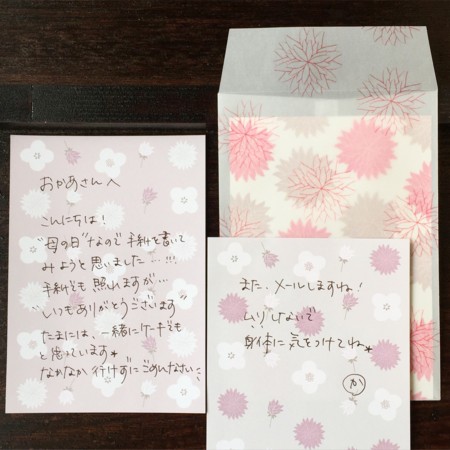 おかあさんへ
こんにちは！
"母の日"なので手紙を書いて
みようと思いました…!!!
手紙でも照れますが…
"いつもありがとうございます"
たまには、一緒にケーキでも
と思っています*
なかなか行けずにごめんなさい
また、メールしますね！
ムリしないで
身体に気をつけてね*
か